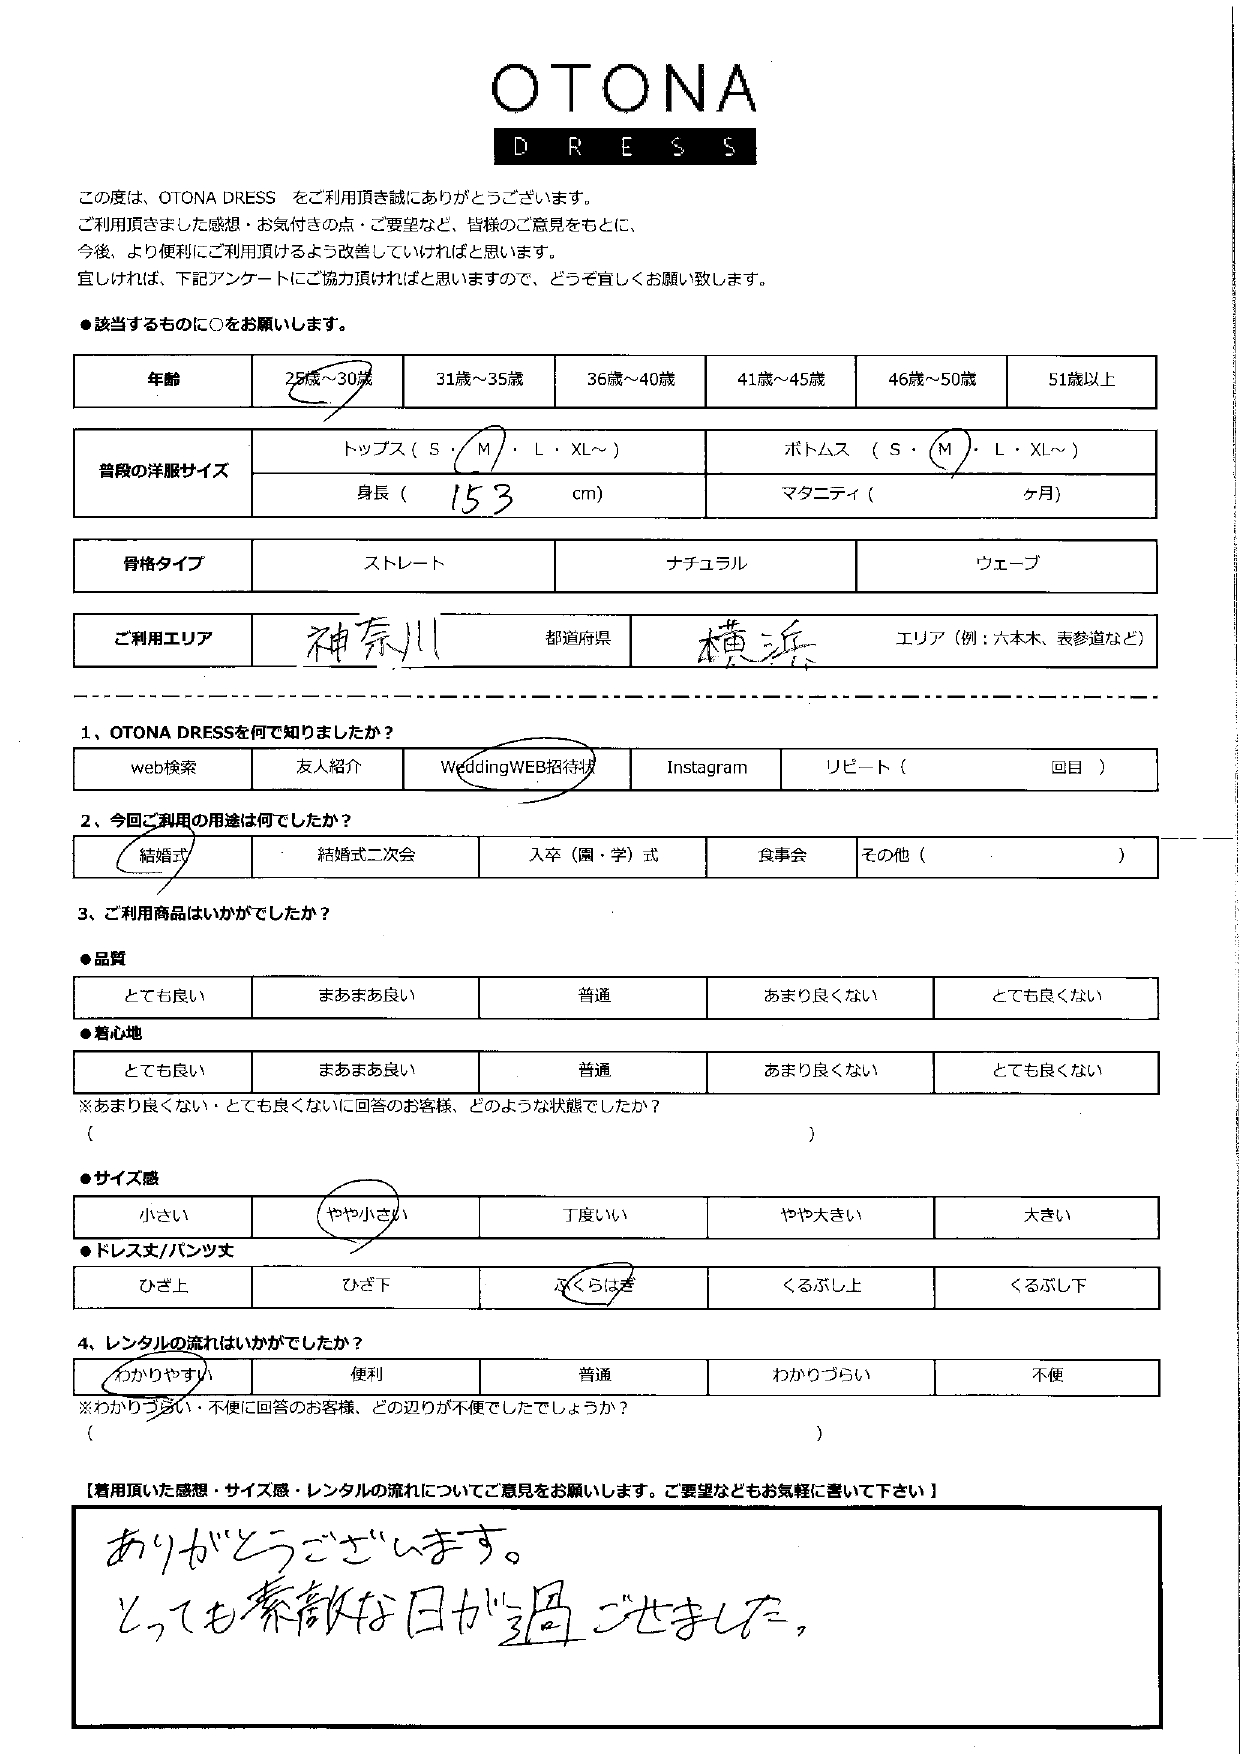 OTONA
DRESS
この度は、OTONA DRESS　をご利用頂き誠にありがとうございます。
ご利用頂きました感想・お気付きの点・ご要望など、皆様のご意見をもとに、
今後、より便利にご利用頂けるよう改善していければと思います。
宜しければ、下記アンケートにご協力頂ければと思いますので、どうぞ宜しくお願い致します。
●該当するものに○をお願いします。
年齢 25歳～30歳 31歳～35歳 36歳～40歳 41歳～45歳 46歳～50歳 51歳以上
普段の洋服サイズ トップス ( S ・ M ・ L ・ XL～ ) ボトムス ( S ・ M ・ L ・ XL～ )
身長 ( 153 cm) マタニティ ( ケ月)
骨格タイプ ストレート ナチュラル ウェーブ
ご利用エリア 神奈川 都道府県 横浜 エリア（例：六本木、表参道など）
1、OTONA DRESSを何で知りましたか？
web検索 友人紹介 WeddingWEB招待状 Instagram リピート（ 回目 ）
2、今回ご利用の用途は何でしたか？
結婚式 結婚式二次会 入卒（園・学）式 食事会 その他（ ）
3、ご利用商品はいかがでしたか？
●品質
とても良い まあまあ良い 普通 あまり良くない とても良くない
●着心地
とても良い まあまあ良い 普通 あまり良くない とても良くない
※あまり良くない・とても良くないに回答のお客様、どのような状態でしたか？
（ ）
●サイズ感
小さい やや小さい 丁度いい やや大きい 大きい
●ドレス丈/パンツ丈
ひざ上 ひざ下 ふくらはぎ くるぶし上 くるぶし下
4、レンタルの流れはいかがでしたか？
わかりやすい 便利 普通 わかりづらい 不便
※わかりづらい・不便に回答のお客様、どの辺りが不便でしたでしょうか？
（ ）
【着用頂いた感想・サイズ感・レンタルの流れについてご意見をお願いします。ご要望などもお気軽に書いて下さい 】
ありがとうございます。
とっても素敵な日が過ごせました。